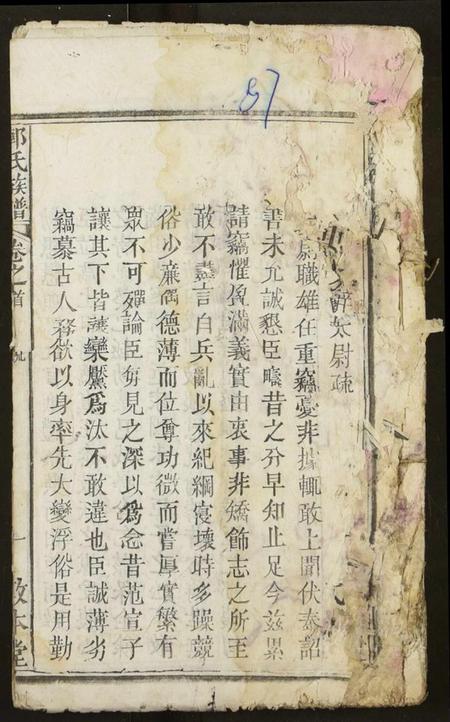 57
辭太尉疏
尉職雄任重竊憂非據輒敢上聞伏奉詔
書未允誠懇臣疇昔之分早知止足今茲累
請竊懼盈滿義實由衷事非矯飾志之所至
敢不盡言自兵亂以來紀綱寖壞時多躁競
俗少廉隅德薄而位尊功微而嘗厚實繁有
眾不可殫論臣每見之深以為念昔范宣子
讓其下皆讓欒黶為汰不敢違也臣誠薄劣
竊慕古人務欲以身率先大變浮俗是用勤
郭氏族譜 卷之首 九 一 敦本堂